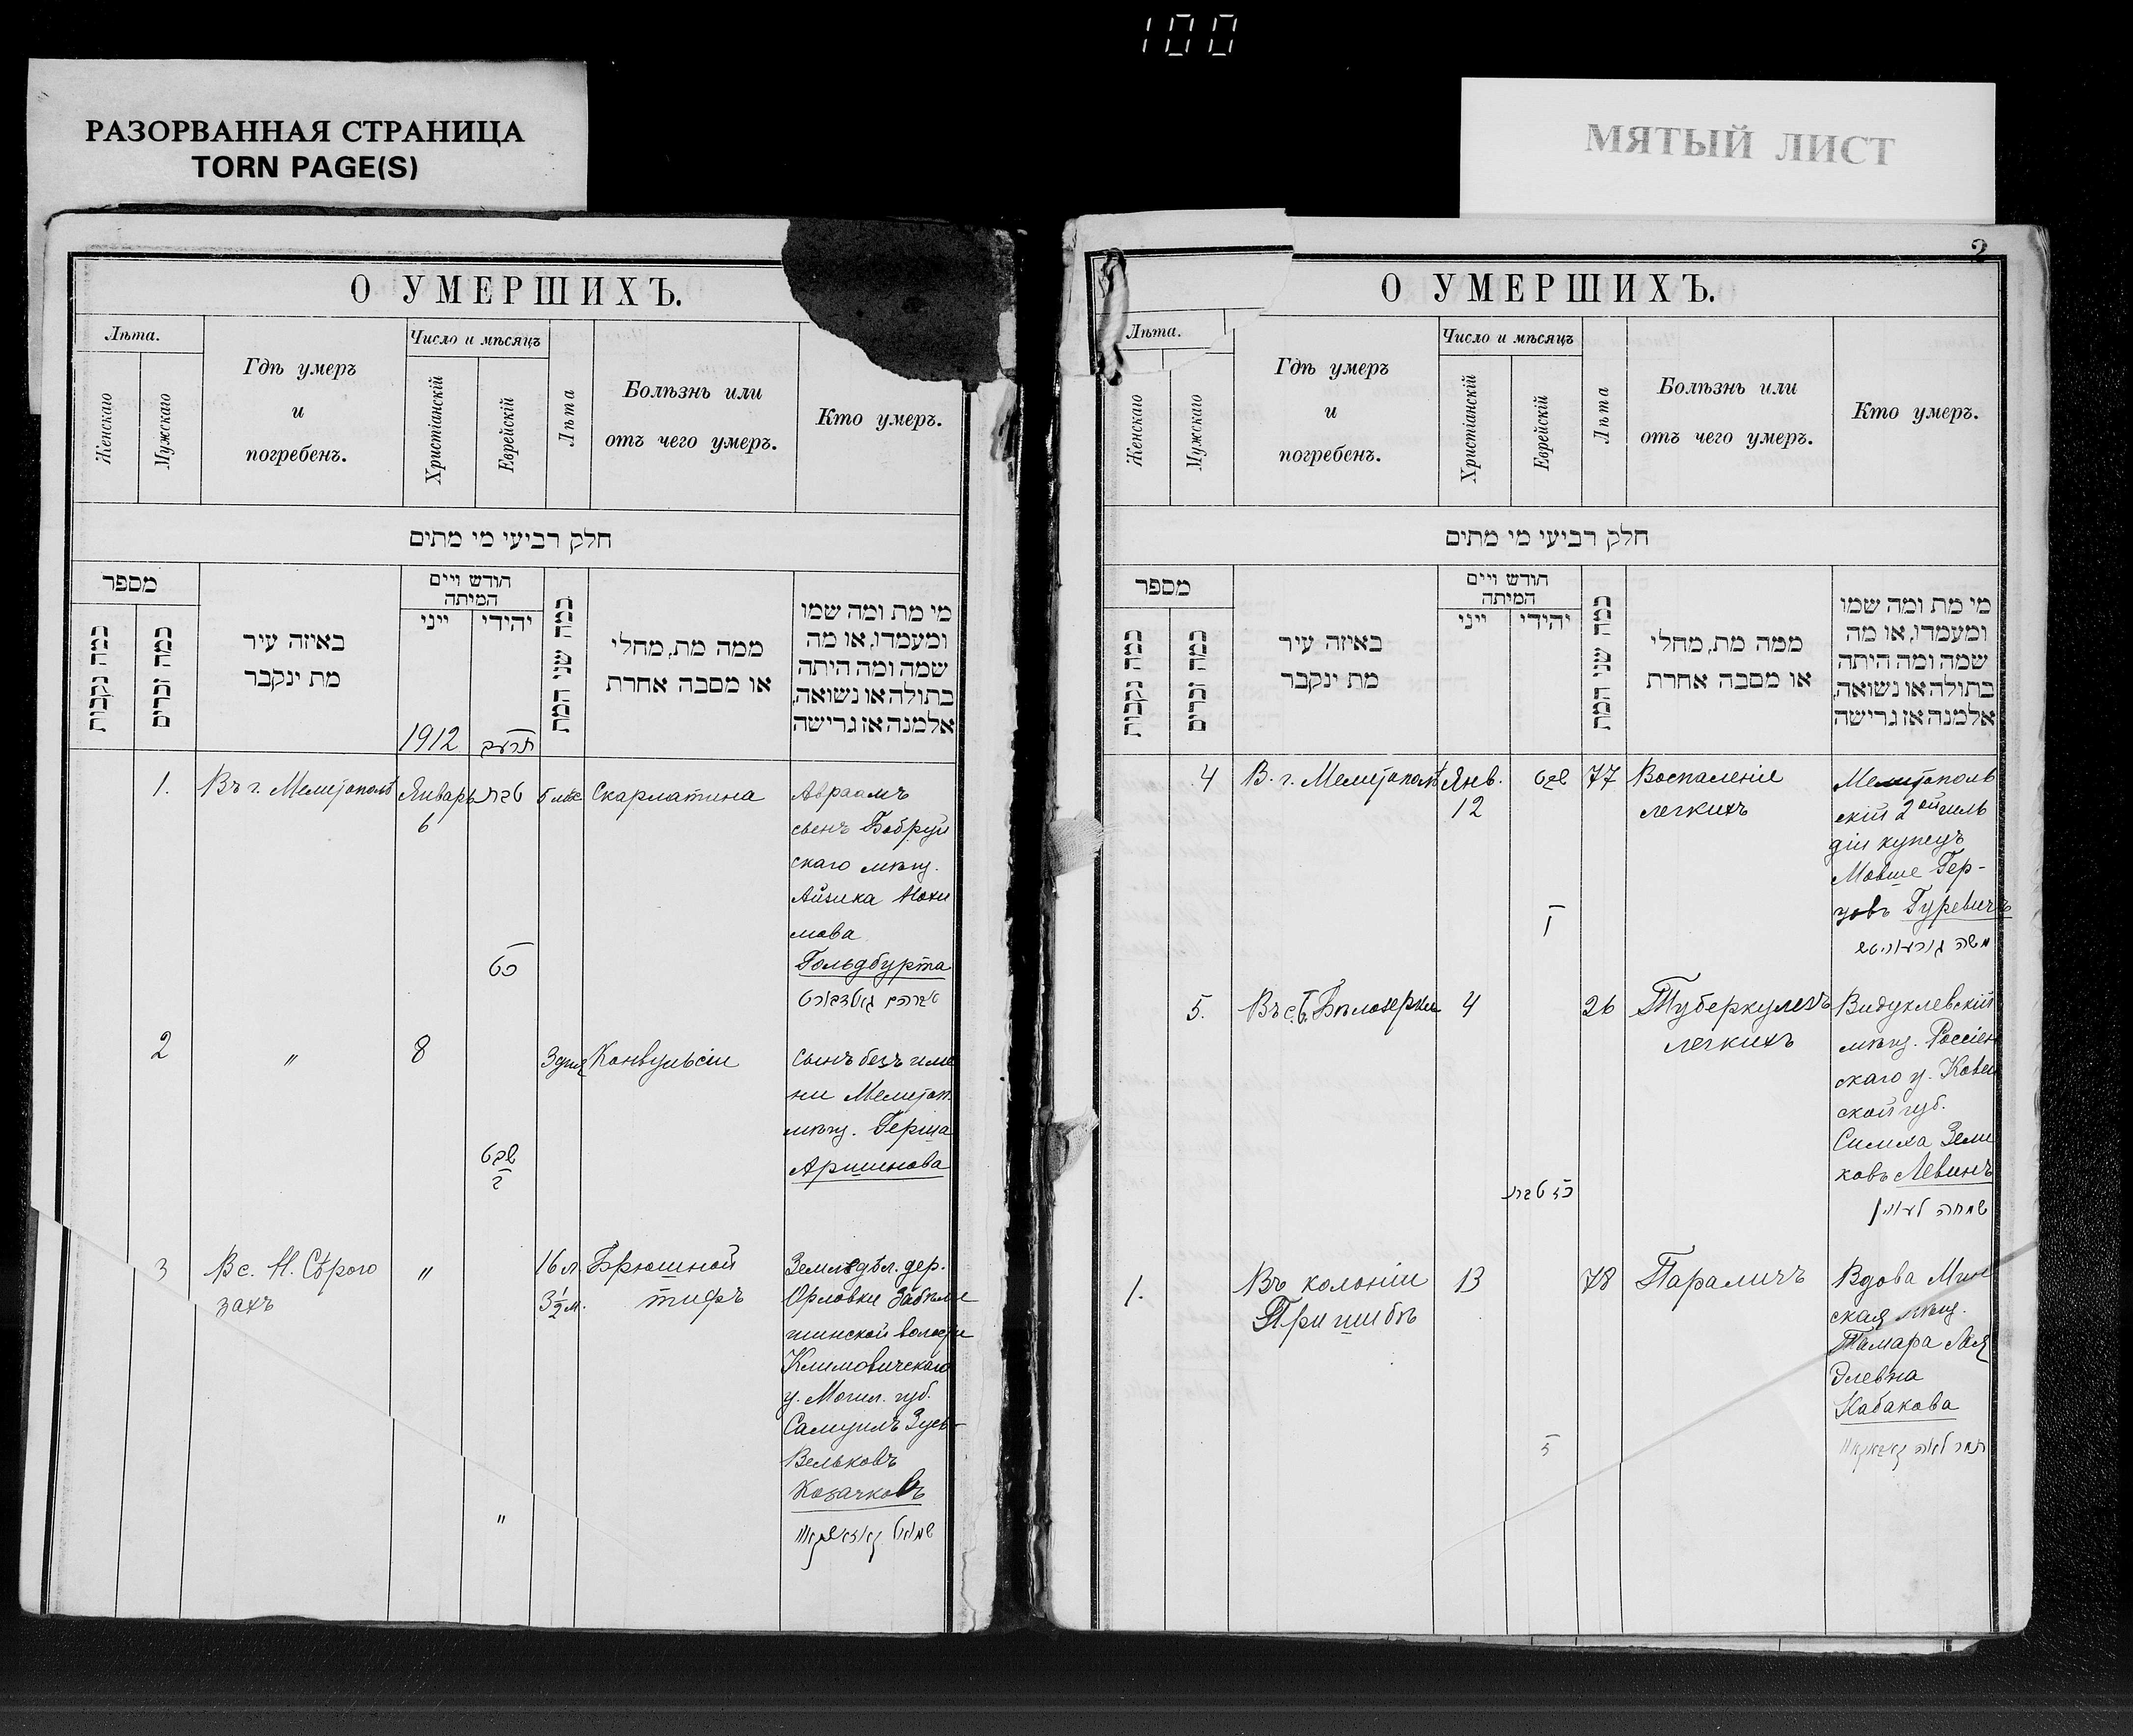 100
РАЗОРВАННАЯ СТРАНИЦА
TORN PAGE(S)
МЯТЫЙ ЛИСТ
О УМЕРШИХЪ.
Лѣта.
Женскаго
Мужскаго
Гдѣ умеръ
и
погребенъ.
Число и мѣсяцъ
Христіанскій
Еврейскій
Лѣта
Болѣзнь или
отъ чего умеръ.
Кто умеръ.
חלק רביעי מי מתים
מספר
כמה נקבות
כמה זכרים
באיזה עיר
מת ינקבר
חודש ויים
המיתה
ייני
יהודי
1912
כמה שני המת
ממה מת, מחלי
או מסבה אחרת
מי מת ומה שמו
ומעמדו, או מה
שמה ומה היתה
בתולה או נשואה,
אלמנה אז גרישה
1.
Въ г. Мелитополѣ
Январь
6
טבת
כט
5 мѣс
Скарлатина
Авраамъ
сынъ Бобруй
скаго мѣщ.
Айзика Нохи
мова
Гольдбурта
2
"
8
שבט
3 дня
Конвульсіи
Сынъ безъ име
ни Мелитоп.
мѣщ. Герша
Аршинова
3
В с. Н. Сѣрого
захъ
"
"
16 л.
3½ м.
Брюшной
тифъ
Земледѣл. дер.
Орловки
волости
Климовичскаго
у. Могил. губ.
Самуилъ Зусь-
Вельковъ
Козачковъ
2
О УМЕРШИХЪ.
Лѣта.
Женскаго
Мужскаго
Гдѣ умеръ
и
погребенъ.
Число и мѣсяцъ
Христіанскій
Еврейскій
Лѣта
Болѣзнь или
отъ чего умеръ.
Кто умеръ.
חלק רביעי מי מתים
מספר
כמה נקבות
כמה זכרים
באיזה עיר
מת ינקבר
חודש ויים
המיתה
ייני
יהודי
כמה שני המת
ממה מת, מחלי
או מסבה אחרת
מי מת ומה שמו
ומעמדו, או מה
שמה ומה היתה
בתולה או נשואה,
אלמנה אז גרישה
4
В. г. Мелитополѣ
Янв.
12
שבט
77
Воспаленіе
легкихъ
Мелитополь
скій 2ой гиль
діи купецъ
Мовше Гер-
цовъ Гуревичъ
משה גורעוויטש
5.
Въ с. Б. Бѣлозеркѣ
4
טבת
26
Туберкулезъ
легкихъ
Видуклевскій
мѣщ. Россіен
скаго у. Ковен
ской губ.
Симха Зели
ковъ Левинъ
שמחה לעווין
1.
Въ колоніи
Пришибъ
13
78
Параличъ
Вдова Мин
ская мѣщ.
Тамара Лея
Элевна
Кабакова